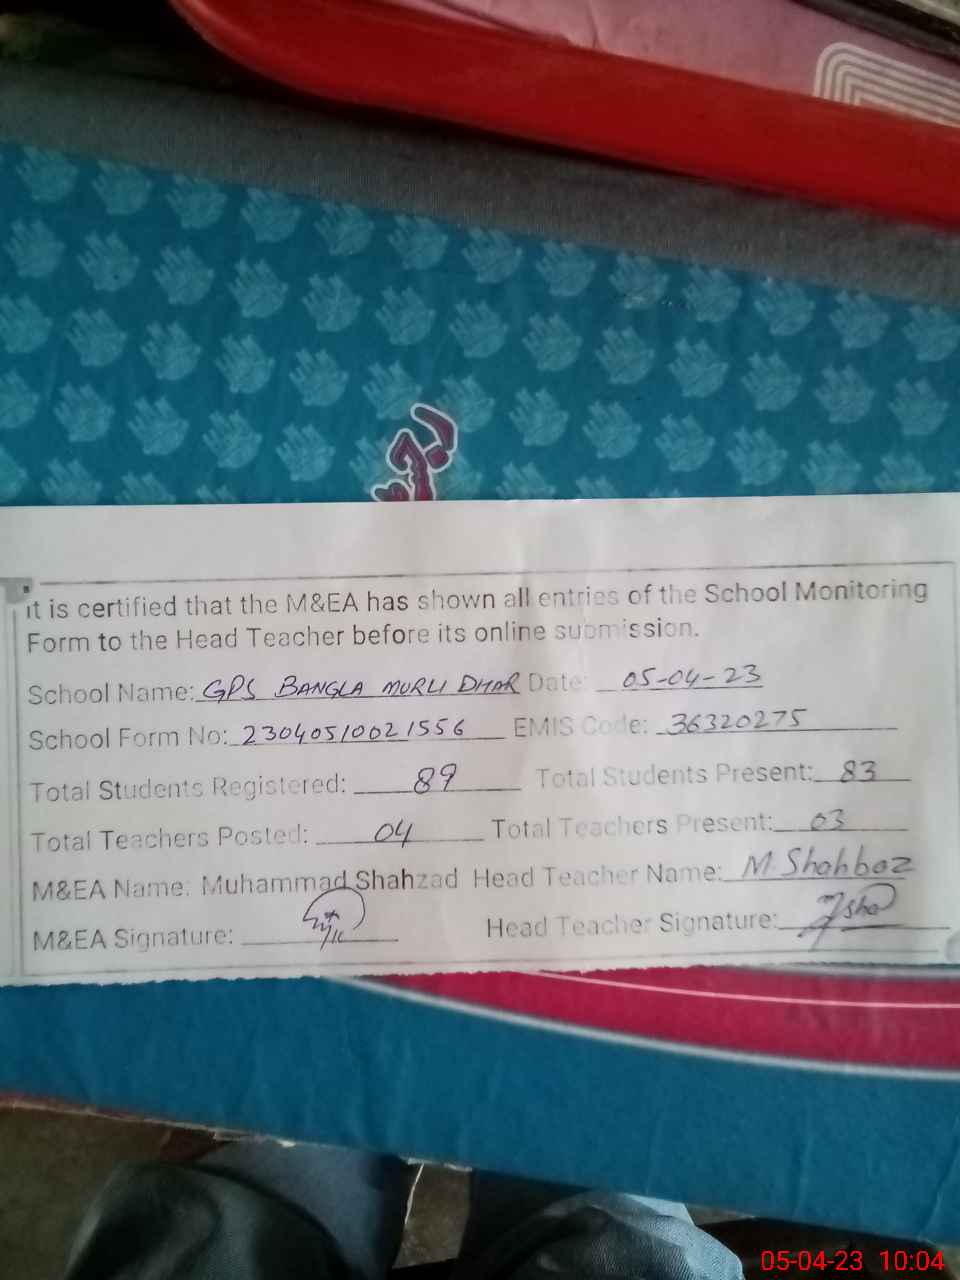 It is certified that the M&EA has shown all entries of the School Monitoring
Form to the Head Teacher before its online submission.
School Name: GPS BANGLA MURLI DHAR Date: 05-04-23
School Form No: 23040510021556 EMIS Code: 36320275
Total Students Registered: 89 Total Students Present: 83
Total Teachers Posted: 04 Total Teachers Present: 03
M&EA Name: Muhammad Shahzad Head Teacher Name: M. Shahbaz
M&EA Signature: Head Teacher Signature:
05-04-23 10:04